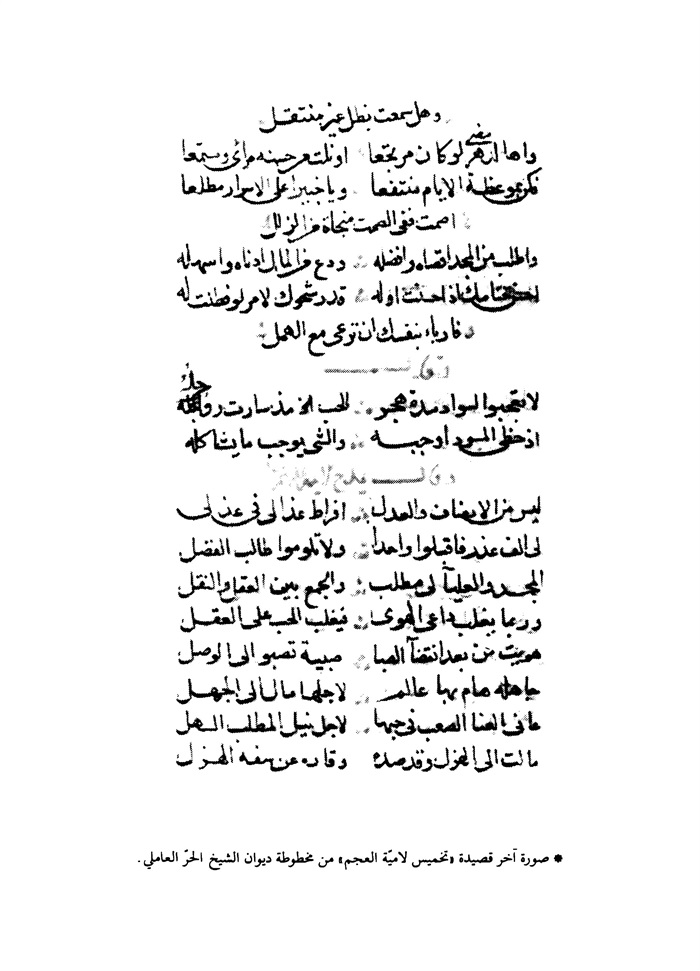 وهل سمعت بظل غير منتقل
واها لدهر لو كان مر بخعا اونلت من حسنه مرأى ومستمعا
فكن بموعظة الايام منتفعا ويا خبيرا على الاسرار مطلعا
اصمت ففى الصمت منجاة من الزلل
واطلب من المجد اقصاه وافضله ودع من المال ادناه واسهله
ختامك اذا اوله قد رشحوك لامر لو فطنت له
فاربأ بنفسك ان ترعى مع الهمل
وقال
لا تعجبوا لسواد مدة هجر للحب مذ سارت رواحله
اذ حظى المسود اوجبه والشى يوجب ما يشاكله
وقال
ليس من الانصاف والعدل افراط عذالى فى عذلى
لى الف عذر فاقبلوا واحدا ولا تلوموا طالب الفضل
المجد والعليآ لى مطلب والجمع بين العقل والنقل
وربما يغلب داعى الهوى فيغلب الحب على العقل
هويت من بعد انقضآ الصبا صبية تصبو الى الوصل
جاهلة هام بها عالم لاجلها مال الى الجهل
عانى العنا الصعب فى حبها لاجل نيل المطلب السهل
مالت الى الهزل وقد صده وقاره عن سفه الهزل
* صورة آخر قصيدة «تخميس لاميّة العجم» من مخطوطة ديوان الشيخ الحرّ العاملي.